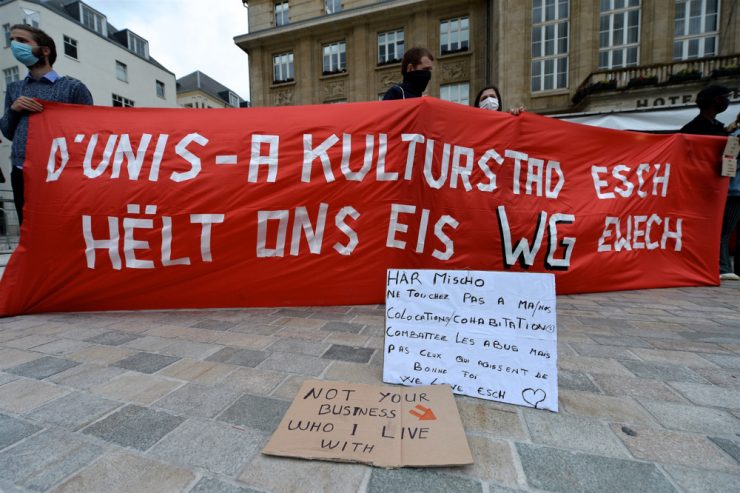 D'UNIS-A KULTURSTAD ESCH
HËLT ONS EIS WG EWECH
HOTE
HAR MISCHO
NE TOUCHEZ PAS A MA/NOS
COLOCATIONS/COHABITATION(S)
COMBATTER LES ABUS MAIS
PAS CEUX QUI AGISSENT DE
BONNE FOI
WE LOVE ESCH
NOT YOUR
BUSINESS
WHO I LIVE
WITH